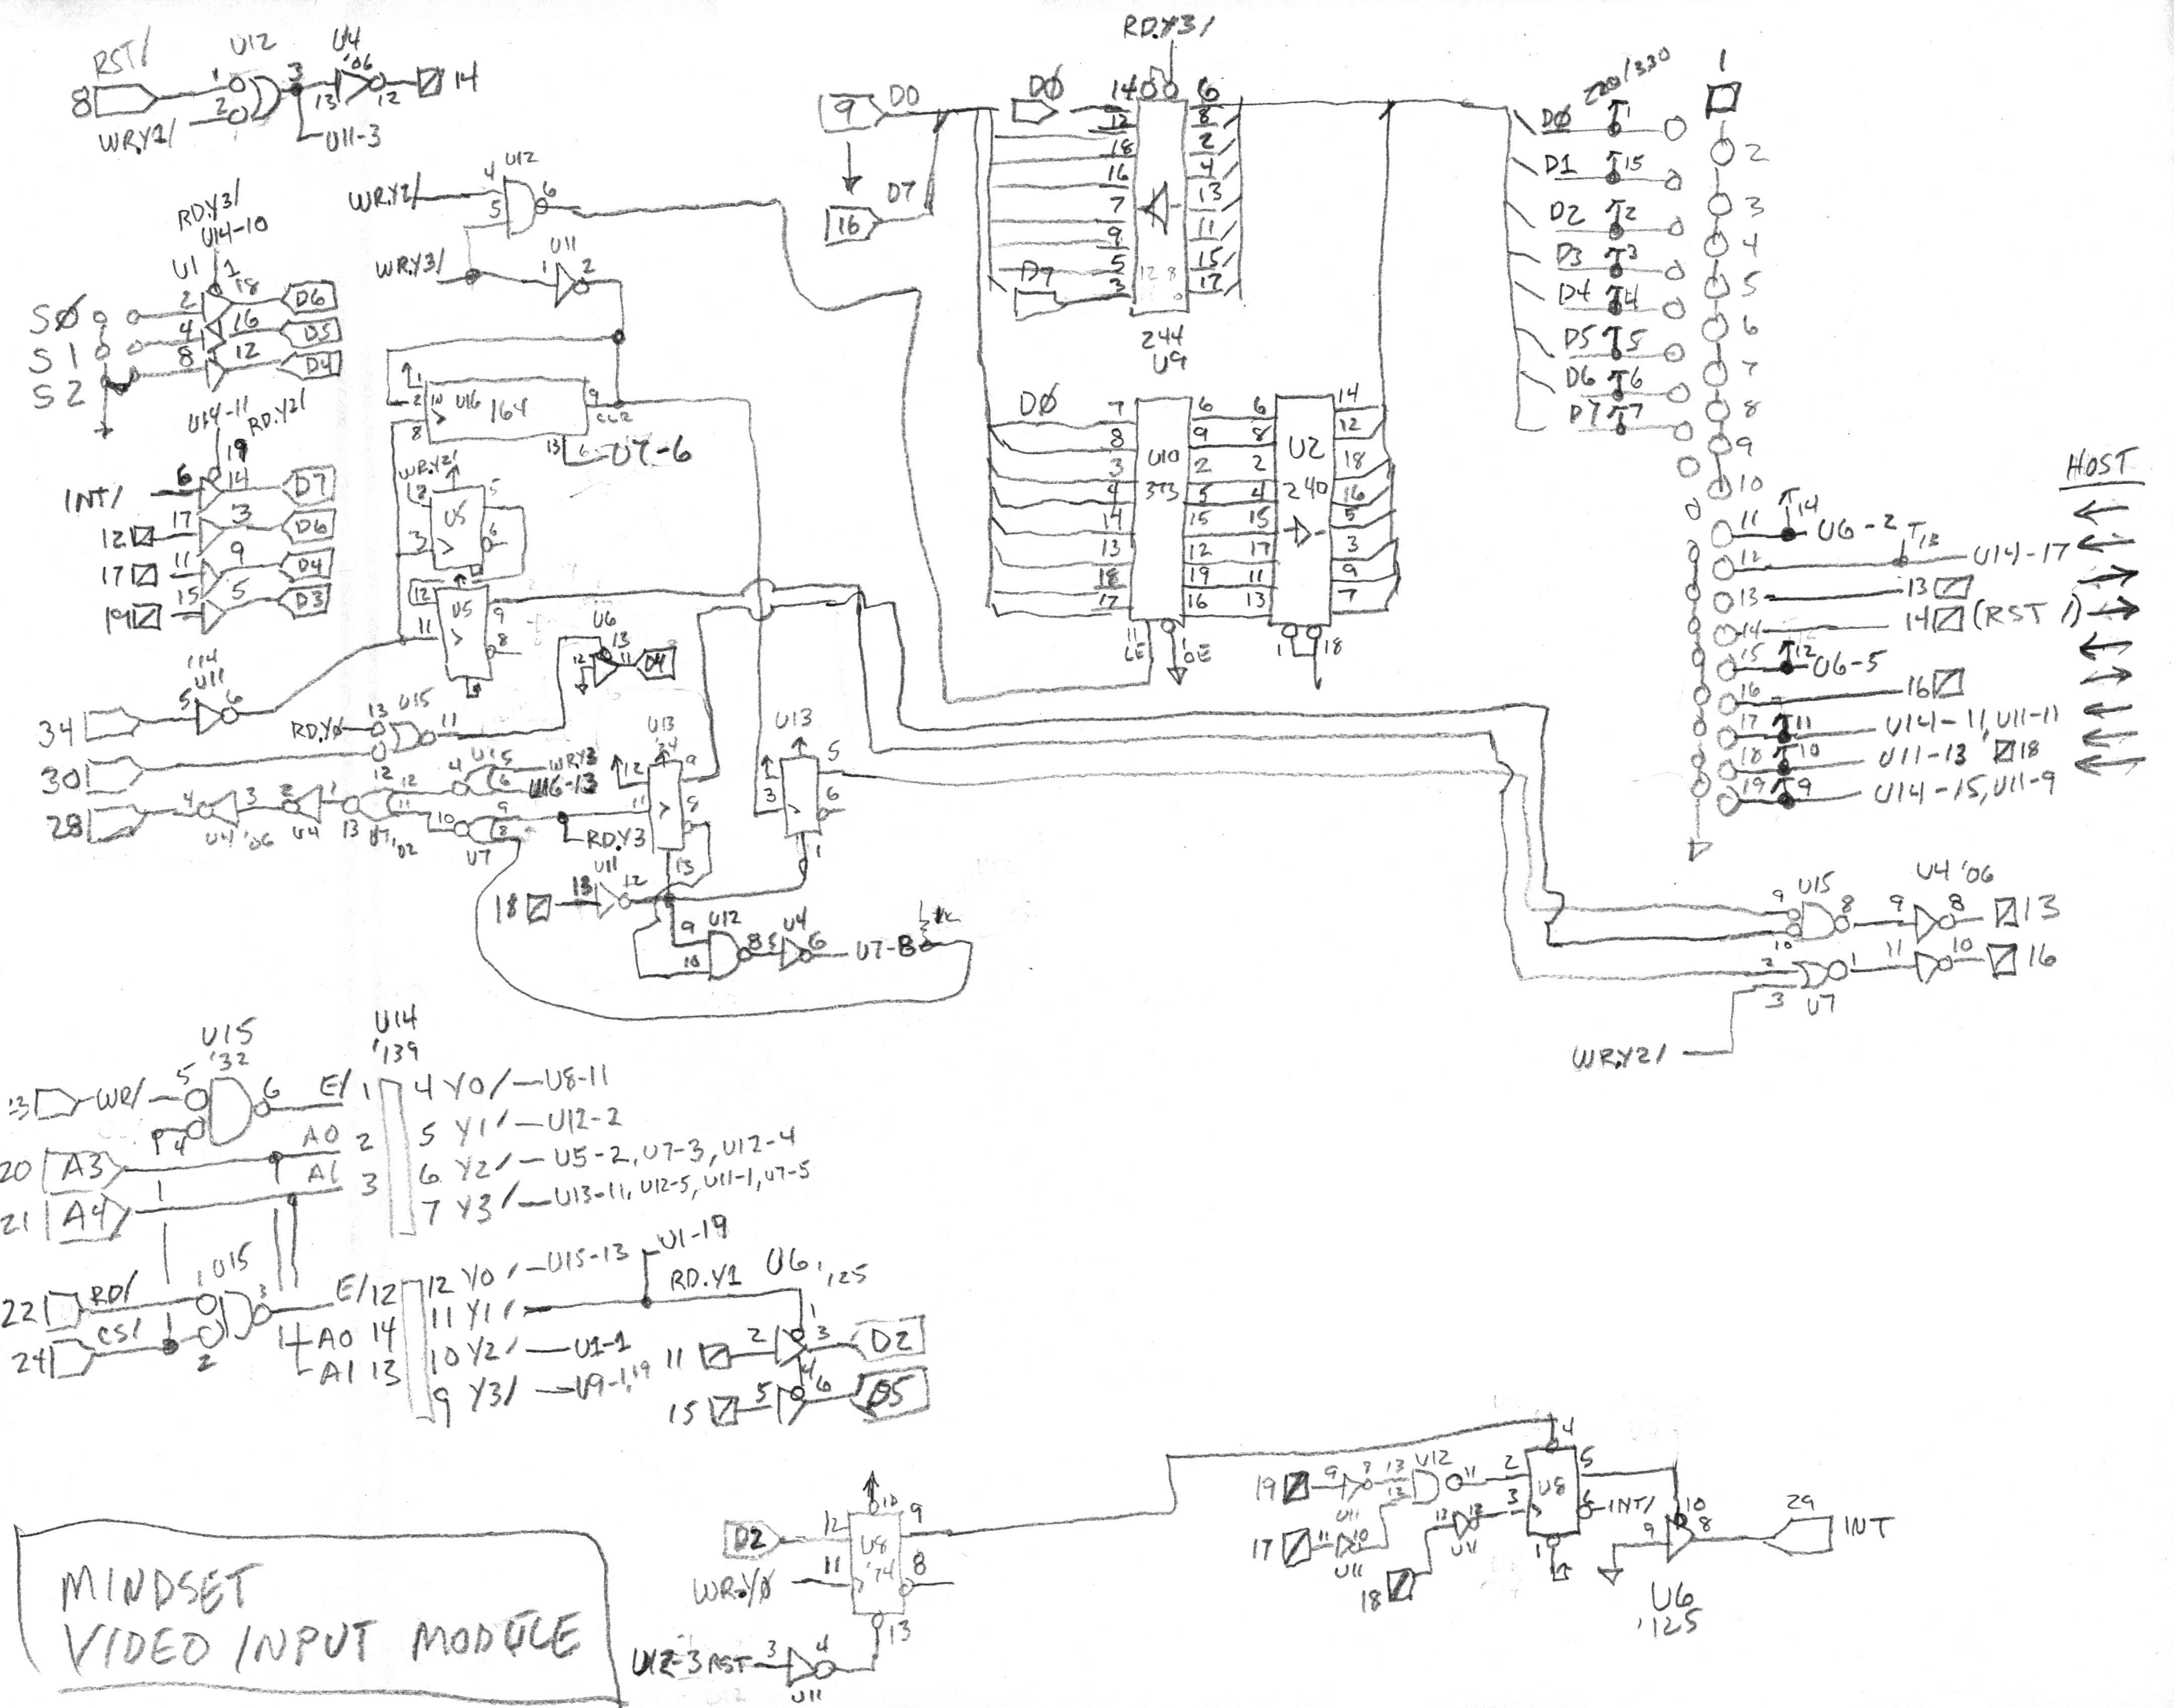 RST/ U12 U4 '06
8 1 2 3 13 12 14
WR.Y1/ U11-3
WR.Y2/ 4 5 U12 6
WR.Y3/ 1 U11 2
RD.Y3/
U14-10
U1 1
SØ 2 18 D6
S1 4 16 D5
S2 8 12 D4
U14-11 RD.Y2/
19
INT/ 6 14 D7
12 17 3 D6
17 11 9 D4
19 15 5 D3
1 2 10 U16 164 9 CLR
8 13 6 U7-6
WR.Y2/
2 U5 5
3 6
12 U5 9
11 8
'14
U11
34 5 6
U6
12 13 11 D4
RD.YØ 13 U15 11
30 12
28 4 3 2 1 13 12 11 4 5 6 WR.Y3
U16-13
U4 '06 U4 U7 '02 10 9 8 U7
RD.Y3
U13 '74
12 9
11 8
13
U13
5
3 6
1
18 13 U11 12
9 10 U12 8 5 U4 6 U7-8 1K
RD.Y3/
9 D0
16 D7
DØ 14 6
12 8
18 2
16 4
7 13
9 11
5 15
D7 3 17
244
U9
DØ 7 6 6 14
8 9 8 12
3 U10 2 2 U2 18
4 373 5 4 240 16
14 15 15 5
13 12 17 3
18 19 11 9
17 16 13 7
11 LE 1 OE 1 18
220/330
1
DØ 1
2
D1 15
3
D2 2
4
D3 3
5
D4 4
6
D5 5
7
D6 6
8
D7 7
9
10
HOST
11 14 U6-2
12 13 U14-17
13 13
14 14 (RST/)
15 12 U6-5
16 16
17 11 U14-11, U11-11
18 10 U11-13 18
19 9 U14-15, U11-9
9 U15 8 9 U4 '06 8 13
10
2 1 11 10 16
3 U7
WR.Y2/
U15 '32
U14 '139
13 WR/ 5 6 E/ 1 4 Y0/ U8-11
4 A0 2 5 Y1/ U12-2
20 A3 A1 3 6 Y2/ U5-2, U7-3, U12-4
21 A4 7 Y3/ U13-11, U12-5, U11-1, U7-5
22 RD/ 1 U15 3 E/ 12 12 Y0/ U15-13
U1-19
24 CS/ 2 A0 14 11 Y1/ RD.Y1 U6 '125
A1 13 10 Y2/ U1-1
9 Y3/ U9-1,19
11 2 1 3 D2
15 5 4 6 D5
D2 12 10 9
WR.YØ 11 U8 '74 8
13
U12-3 RST 3 4
U11
19 9 8 13 12 U12 11 2 4 5
U11
17 11 10 U11
18 13 12 U11 3 U8 6 INT/
1
9 10 8 29 INT
U6
'125
MINDSET
VIDEO INPUT MODULE